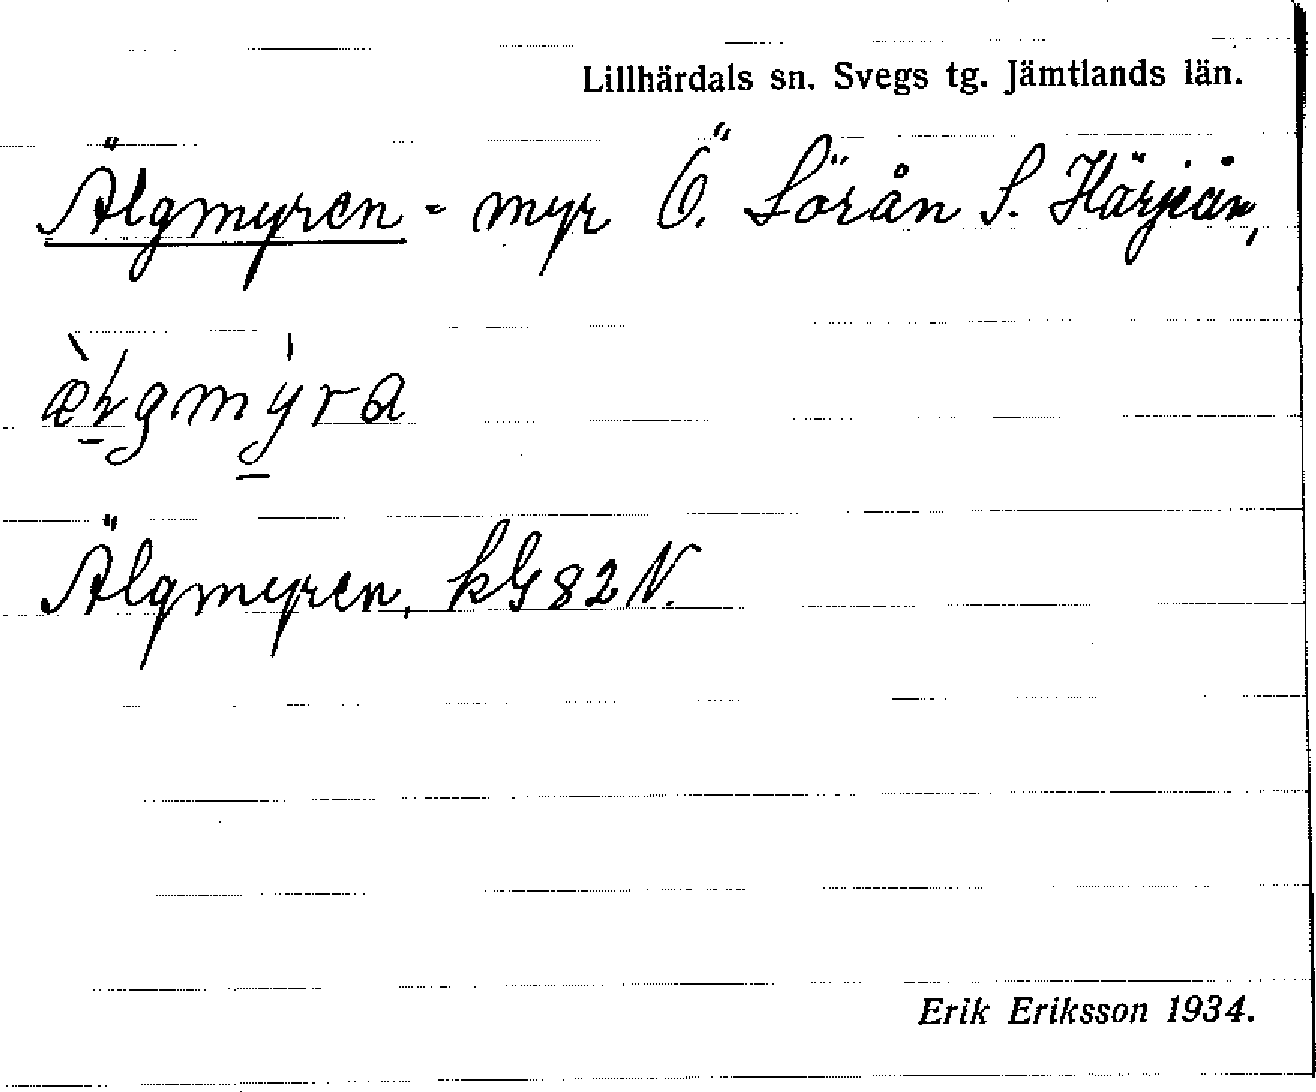 Lillhärdals sn. Svegs tg. Jämtlands län.
Älgmyren - myr Ö. Lörån S. Härjeån,
Älgmyren, kG 82 N.
Erik Eriksson 1934.